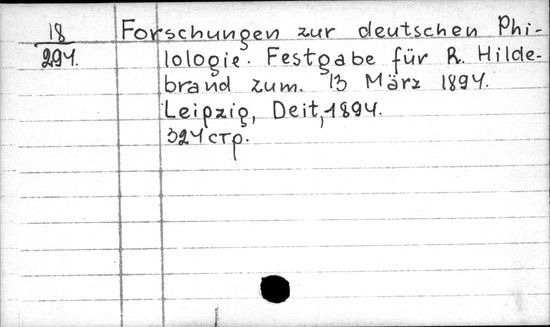 18 Forschungen zur deutschen Phi-
294. lologie. Festgabe für R. Hilde-
brand zum. 13 März 1894.
Leipzig, Deit, 1894.
324 стр.